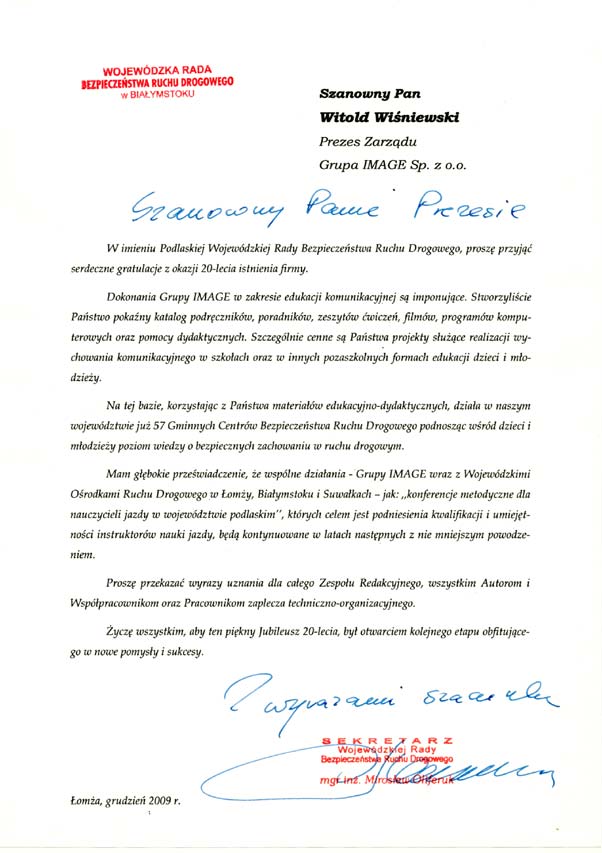 WOJEWÓDZKA RADA
BEZPIECZEŃSTWA RUCHU DROGOWEGO
w BIAŁYMSTOKU
Szanowny Pan
Witold Wiśniewski
Prezes Zarządu
Grupa IMAGE Sp. z o.o.
Szanowny Panie Prezesie
W imieniu Podlaskiej Wojewódzkiej Rady Bezpieczeństwa Ruchu Drogowego, proszę przyjąć
serdeczne gratulacje z okazji 20-lecia istnienia firmy.
Dokonania Grupy IMAGE w zakresie edukacji komunikacyjnej są imponujące. Stworzyliście
Państwo pokaźny katalog podręczników, poradników, zeszytów ćwiczeń, filmów, programów kompu-
terowych oraz pomocy dydaktycznych. Szczególnie cenne są Państwa projekty służące realizacji wy-
chowania komunikacyjnego w szkołach oraz w innych pozaszkolnych formach edukacji dzieci i mło-
dzieży.
Na tej bazie, korzystając z Państwa materiałów edukacyjno-dydaktycznych, działa w naszym
województwie już 57 Gminnych Centrów Bezpieczeństwa Ruchu Drogowego podnosząc wśród dzieci i
młodzieży poziom wiedzy o bezpiecznych zachowaniu w ruchu drogowym.
Mam głębokie przeświadczenie, że wspólne działania - Grupy IMAGE wraz z Wojewódzkimi
Ośrodkami Ruchu Drogowego w Łomży, Białymstoku i Suwałkach – jak: „konferencje metodyczne dla
nauczycieli jazdy w województwie podlaskim", których celem jest podniesienia kwalifikacji i umiejęt-
ności instruktorów nauki jazdy, będą kontynuowane w latach następnych z nie mniejszym powodze-
niem.
Proszę przekazać wyrazy uznania dla całego Zespołu Redakcyjnego, wszystkim Autorom i
Współpracownikom oraz Pracownikom zaplecza techniczno-organizacyjnego.
Życzę wszystkim, aby ten piękny Jubileusz 20-lecia, był otwarciem kolejnego etapu obfitujące-
go w nowe pomysły i sukcesy.
Z wyrazami szacunku
SEKRETARZ
Wojewódzkiej Rady
Bezpieczeństwa Ruchu Drogowego
mgr inż. Mirosław Oliferuk
Łomża, grudzień 2009 r.